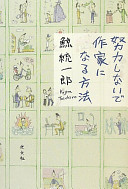 努力しないで
作家に
なる方法
鯨統一郎
Kujira
Toichiro
光文社